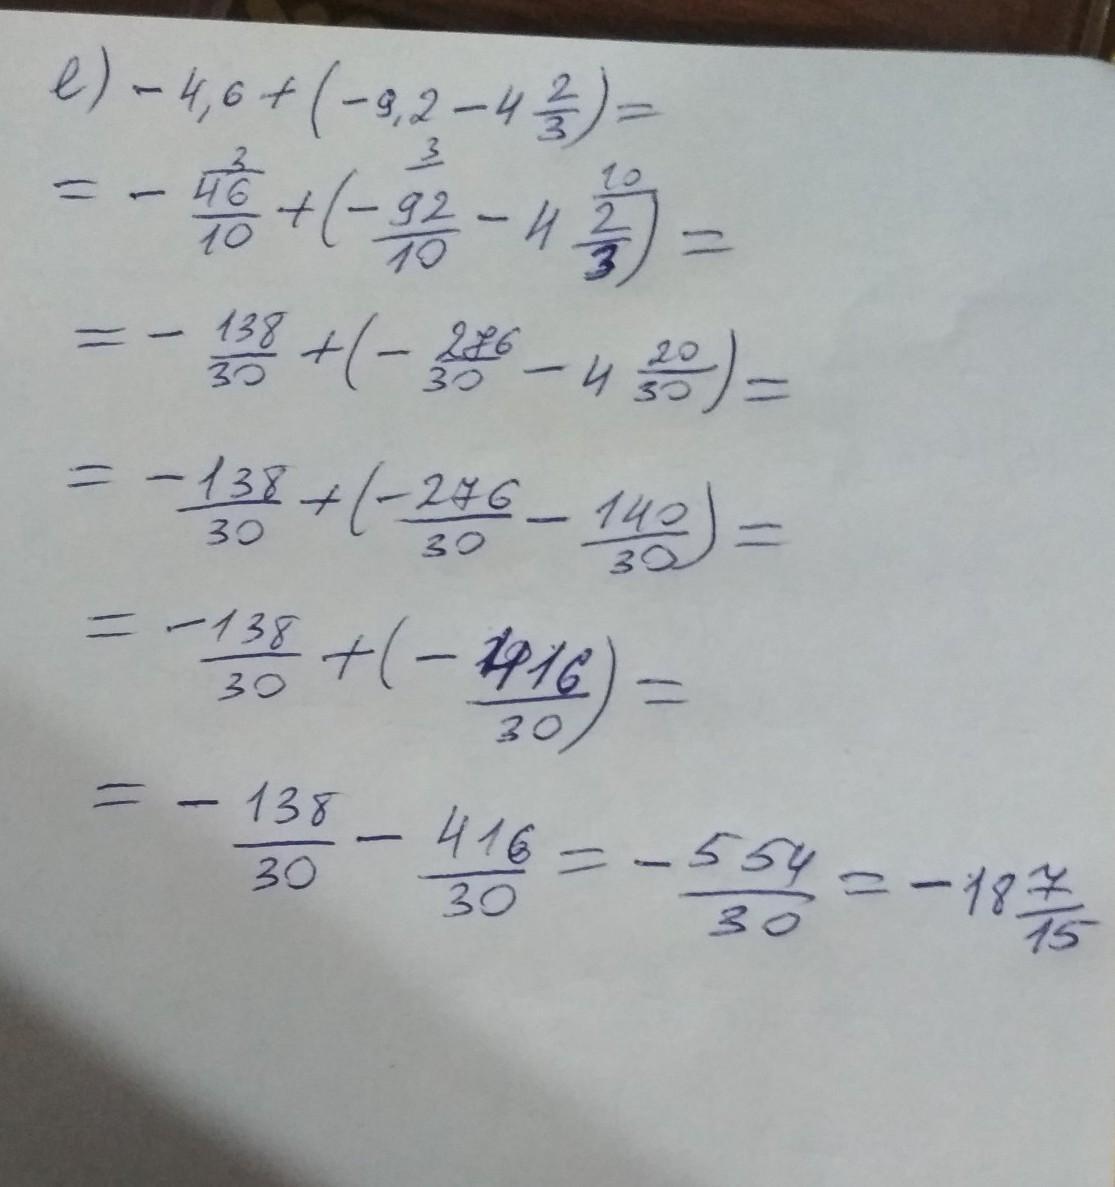 е) - 4,6 + (-9,2 - 4 2/3) =
= - 46/10 3 + (- 92/10 3 - 4 2/3 10) =
= - 138/30 + (- 276/30 - 4 20/30) =
= - 138/30 + (- 276/30 - 140/30) =
= - 138/30 + (- 416/30) =
= - 138/30 - 416/30 = - 554/30 = - 18 7/15